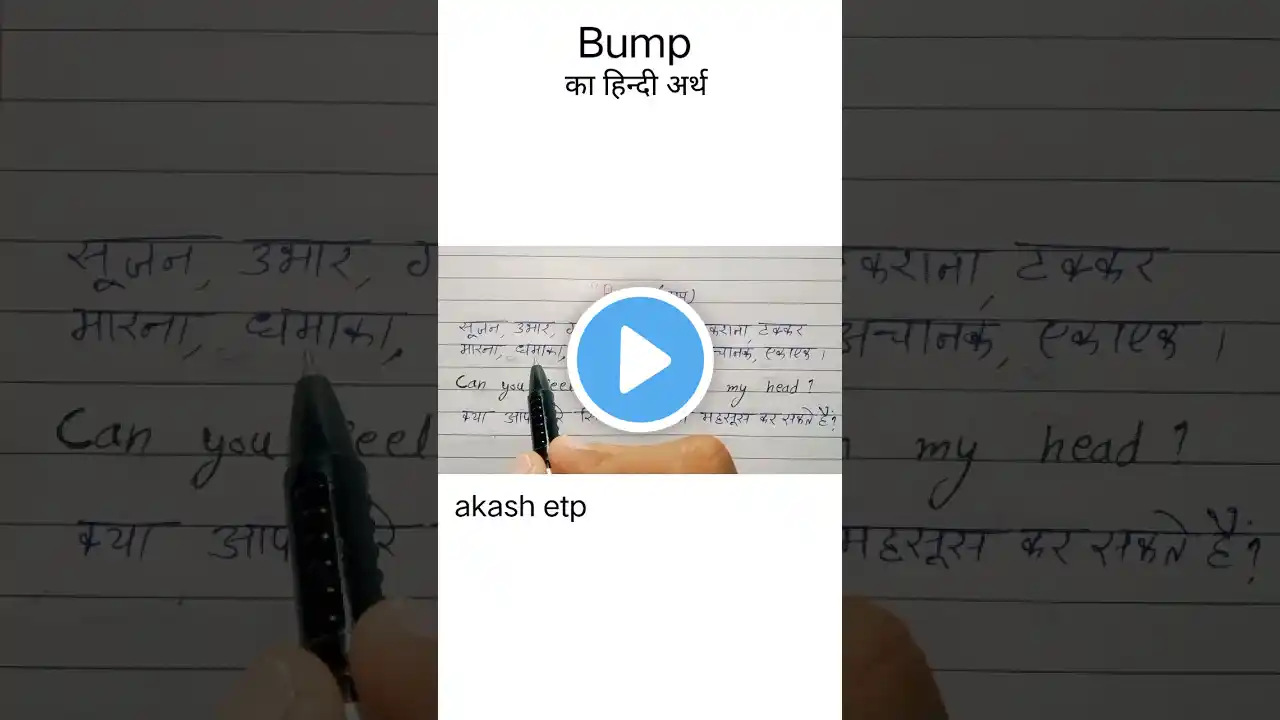 Bump
का हिन्दी अर्थ
सूजन, उभार, टकराना, टक्कर
मारना, धमाका, अचानक, एकाएक ।
Can you feel my head ?
क्या आप महसूस कर सकते हैं?
akash etp